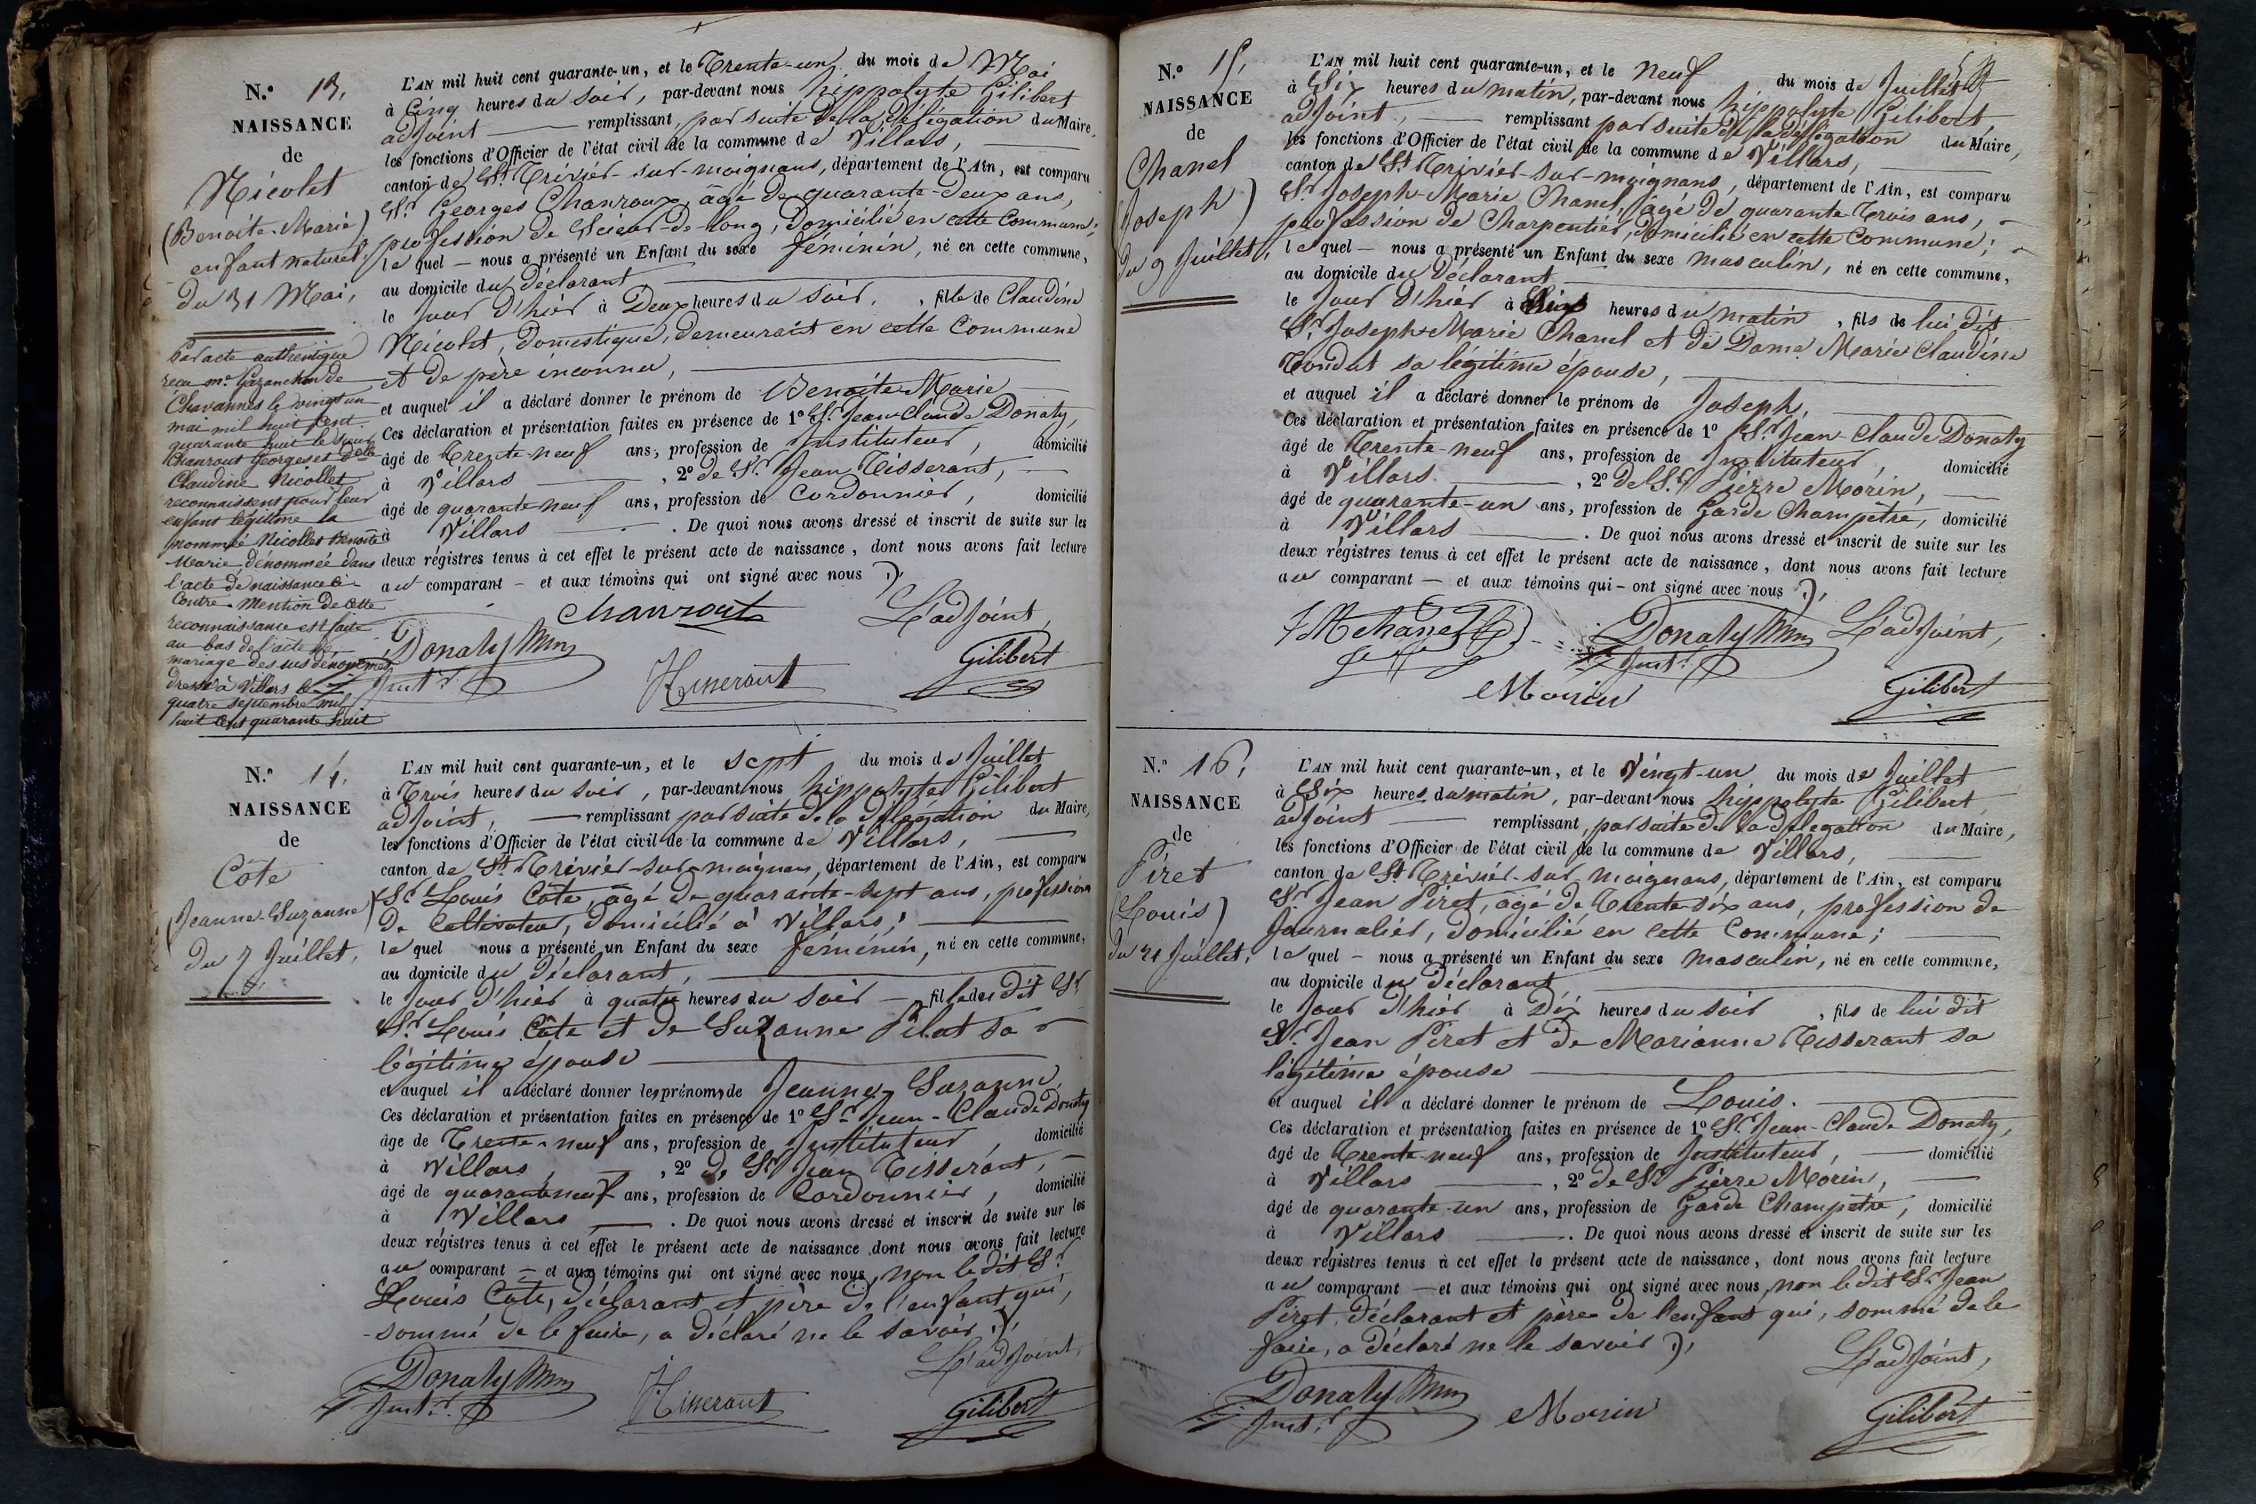 N.° 13.
NAISSANCE
de
Nicolet
(Benoite-Marie)
enfant naturel,
du 31 Mai,
Par acte authentique
reçu me
Chavannes le vingt un
mai mil huit cent
quarante huit le sieur
Chanrout Georges et Delle
Claudine Nicollet
reconnaissent pour leur
enfant légitime la
nommée Nicollet Benoite
Marie dénommée dans
l'acte de naissance ci
contre. Mention de cette
reconnaissance est faite
au bas de l'acte de
mariage des sus dénommés
dressé à Villars le
quatre septembre mil
huit cent quarante huit
L'AN mil huit cent quarante-un, et le Trente-un du mois de Mai
à Cinq heures du soir, par-devant nous hippolyte Gilibert
adjoint remplissant, par suite de la délégation du Maire,
les fonctions d'Officier de l'état civil de la commune de Villars,
canton de St. Trivier-sur-moignans, département de l'Ain, est comparu
Sr. Georges Chanroux, âgé de quarante-deux ans,
profession de Scieur-de-long, domicilié en cette Commune;
lequel nous a présenté un Enfant du sexe féminin, né en cette commune,
au domicile du déclarant
le jour d'hier à Deux heures du soir, fille de Claudine
Nicolet, domestique, demeurait en cette Commune
et de père inconnu,
et auquel il a déclaré donner le prénom de Benoite-Marie
Ces déclaration et présentation faites en présence de 1° Sr. Jean-Claude Donaty,
âgé de Trente-neuf ans, profession de Instituteur, domicilié
à Villars, 2° de Sr. Jean Tisserant,
âgé de quarante-neuf ans, profession de Cordonnier, domicilié
à Villars. De quoi nous avons dressé et inscrit de suite sur les
deux régistres tenus à cet effet le présent acte de naissance, dont nous avons fait lecture
au comparant et aux témoins qui ont signé avec nous.
Chanrout L'adjoint,
Donaty
Instr. Tisserant Gilibert
N.° 14.
NAISSANCE
de
Côte
(Jeanne-Suzanne)
du 7 Juillet,
L'AN mil huit cent quarante-un, et le sept du mois de Juillet
à Trois heures du soir, par-devant nous hippolyte Gilibert
adjoint, remplissant par suite de la délégation du Maire,
les fonctions d'Officier de l'état civil de la commune de Villars,
canton de St. Trivier-sur-moignans, département de l'Ain, est comparu
Sr. Louis Côte, âgé de quarante-sept ans, profession
de Cultivateur, domicilié à Villars;
lequel nous a présenté un Enfant du sexe féminin, né en cette commune,
au domicile du déclarant,
le jour d'hier à quatre heures du soir fille du dit Sr.
Sr. Louis Côte et de Suzanne Pilat sa
légitime épouse
et auquel il a déclaré donner les prénoms de Jeanne-Suzanne
Ces déclaration et présentation faites en présence de 1° Sr. Jean-Claude Donaty
âgé de Trente-neuf ans, profession de Instituteur, domicilié
à Villars, 2° de Sr. Jean Tisserant,
âgé de quarante neuf ans, profession de Cordonnier, domicilié
à Villars. De quoi nous avons dressé et inscrit de suite sur les
deux régistres tenus à cet effet le présent acte de naissance dont nous avons fait lecture
au comparant et aux témoins qui ont signé avec nous, non le dit Sr.
Louis Côte, déclarant et père de l'enfant qui,
sommé de le faire, a déclaré ne le savoir.
L'adjoint,
Donaty
Instr. Tisserant Gilibert
N.° 15.
NAISSANCE
de
Chanel
(Joseph)
du 9 Juillet,
L'AN mil huit cent quarante-un, et le neuf du mois de Juillet
à Six heures du matin, par-devant nous hippolyte Gilibert,
adjoint, remplissant par suite de la délégation du Maire,
les fonctions d'Officier de l'état civil de la commune de Villars,
canton de St. Trivier-sur-moignans, département de l'Ain, est comparu
Sr. Joseph-Marie Chanel, âgé de quarante-trois ans,
profession de Charpentier, domicilié en cette Commune;
lequel nous a présenté un Enfant du sexe masculin, né en cette commune,
au domicile du déclarant
le jour d'hier à heures du matin, fils de lui dit
Sr. Joseph-Marie Chanel et de Dame Marie Claudine
Tondut sa légitime épouse,
et auquel il a déclaré donner le prénom de Joseph,
Ces déclaration et présentation faites en présence de 1° Sr. Jean-Claude Donaty
âgé de Trente-neuf ans, profession de Instituteur, domicilié
à Villars, 2° de Sr. Pierre Morin,
âgé de quarante-un ans, profession de Garde Champêtre, domicilié
à Villars. De quoi nous avons dressé et inscrit de suite sur les
deux régistres tenus à cet effet le présent acte de naissance, dont nous avons fait lecture
au comparant et aux témoins qui ont signé avec nous.
Chanel Donaty L'adjoint,
Instr.
Morin Gilibert
N.° 16.
NAISSANCE
de
Piret
(Louis)
du 21 Juillet,
L'AN mil huit cent quarante-un, et le Vingt-un du mois de Juillet
à Six heures du matin, par-devant nous hippolyte Gilibert
adjoint remplissant, par suite de la délégation du Maire,
les fonctions d'Officier de l'état civil de la commune de Villars,
canton de St. Trivier-sur-moignans, département de l'Ain, est comparu
Sr. Jean Piret, âgé de Trente-six ans, profession de
Journalier, domicilié en cette Commune;
lequel nous a présenté un Enfant du sexe masculin, né en cette commune,
au domicile du déclarant
le jour d'hier à Dix heures du soir, fils de lui dit
Sr. Jean Piret et de Marianne Tisserant sa
légitime épouse
et auquel il a déclaré donner le prénom de Louis.
Ces déclaration et présentation faites en présence de 1° Sr. Jean-Claude Donaty,
âgé de Trente-neuf ans, profession de Instituteur, domicilié
à Villars, 2° de Sr. Pierre Morin,
âgé de quarante-un ans, profession de Garde Champêtre, domicilié
à Villars. De quoi nous avons dressé et inscrit de suite sur les
deux régistres tenus à cet effet le présent acte de naissance, dont nous avons fait lecture
au comparant et aux témoins qui ont signé avec nous, non le dit Sr. Jean
Piret, déclarant et père de l'enfant qui, sommé de le
faire, a déclaré ne le savoir.
L'adjoint,
Donaty
Instr. Morin Gilibert